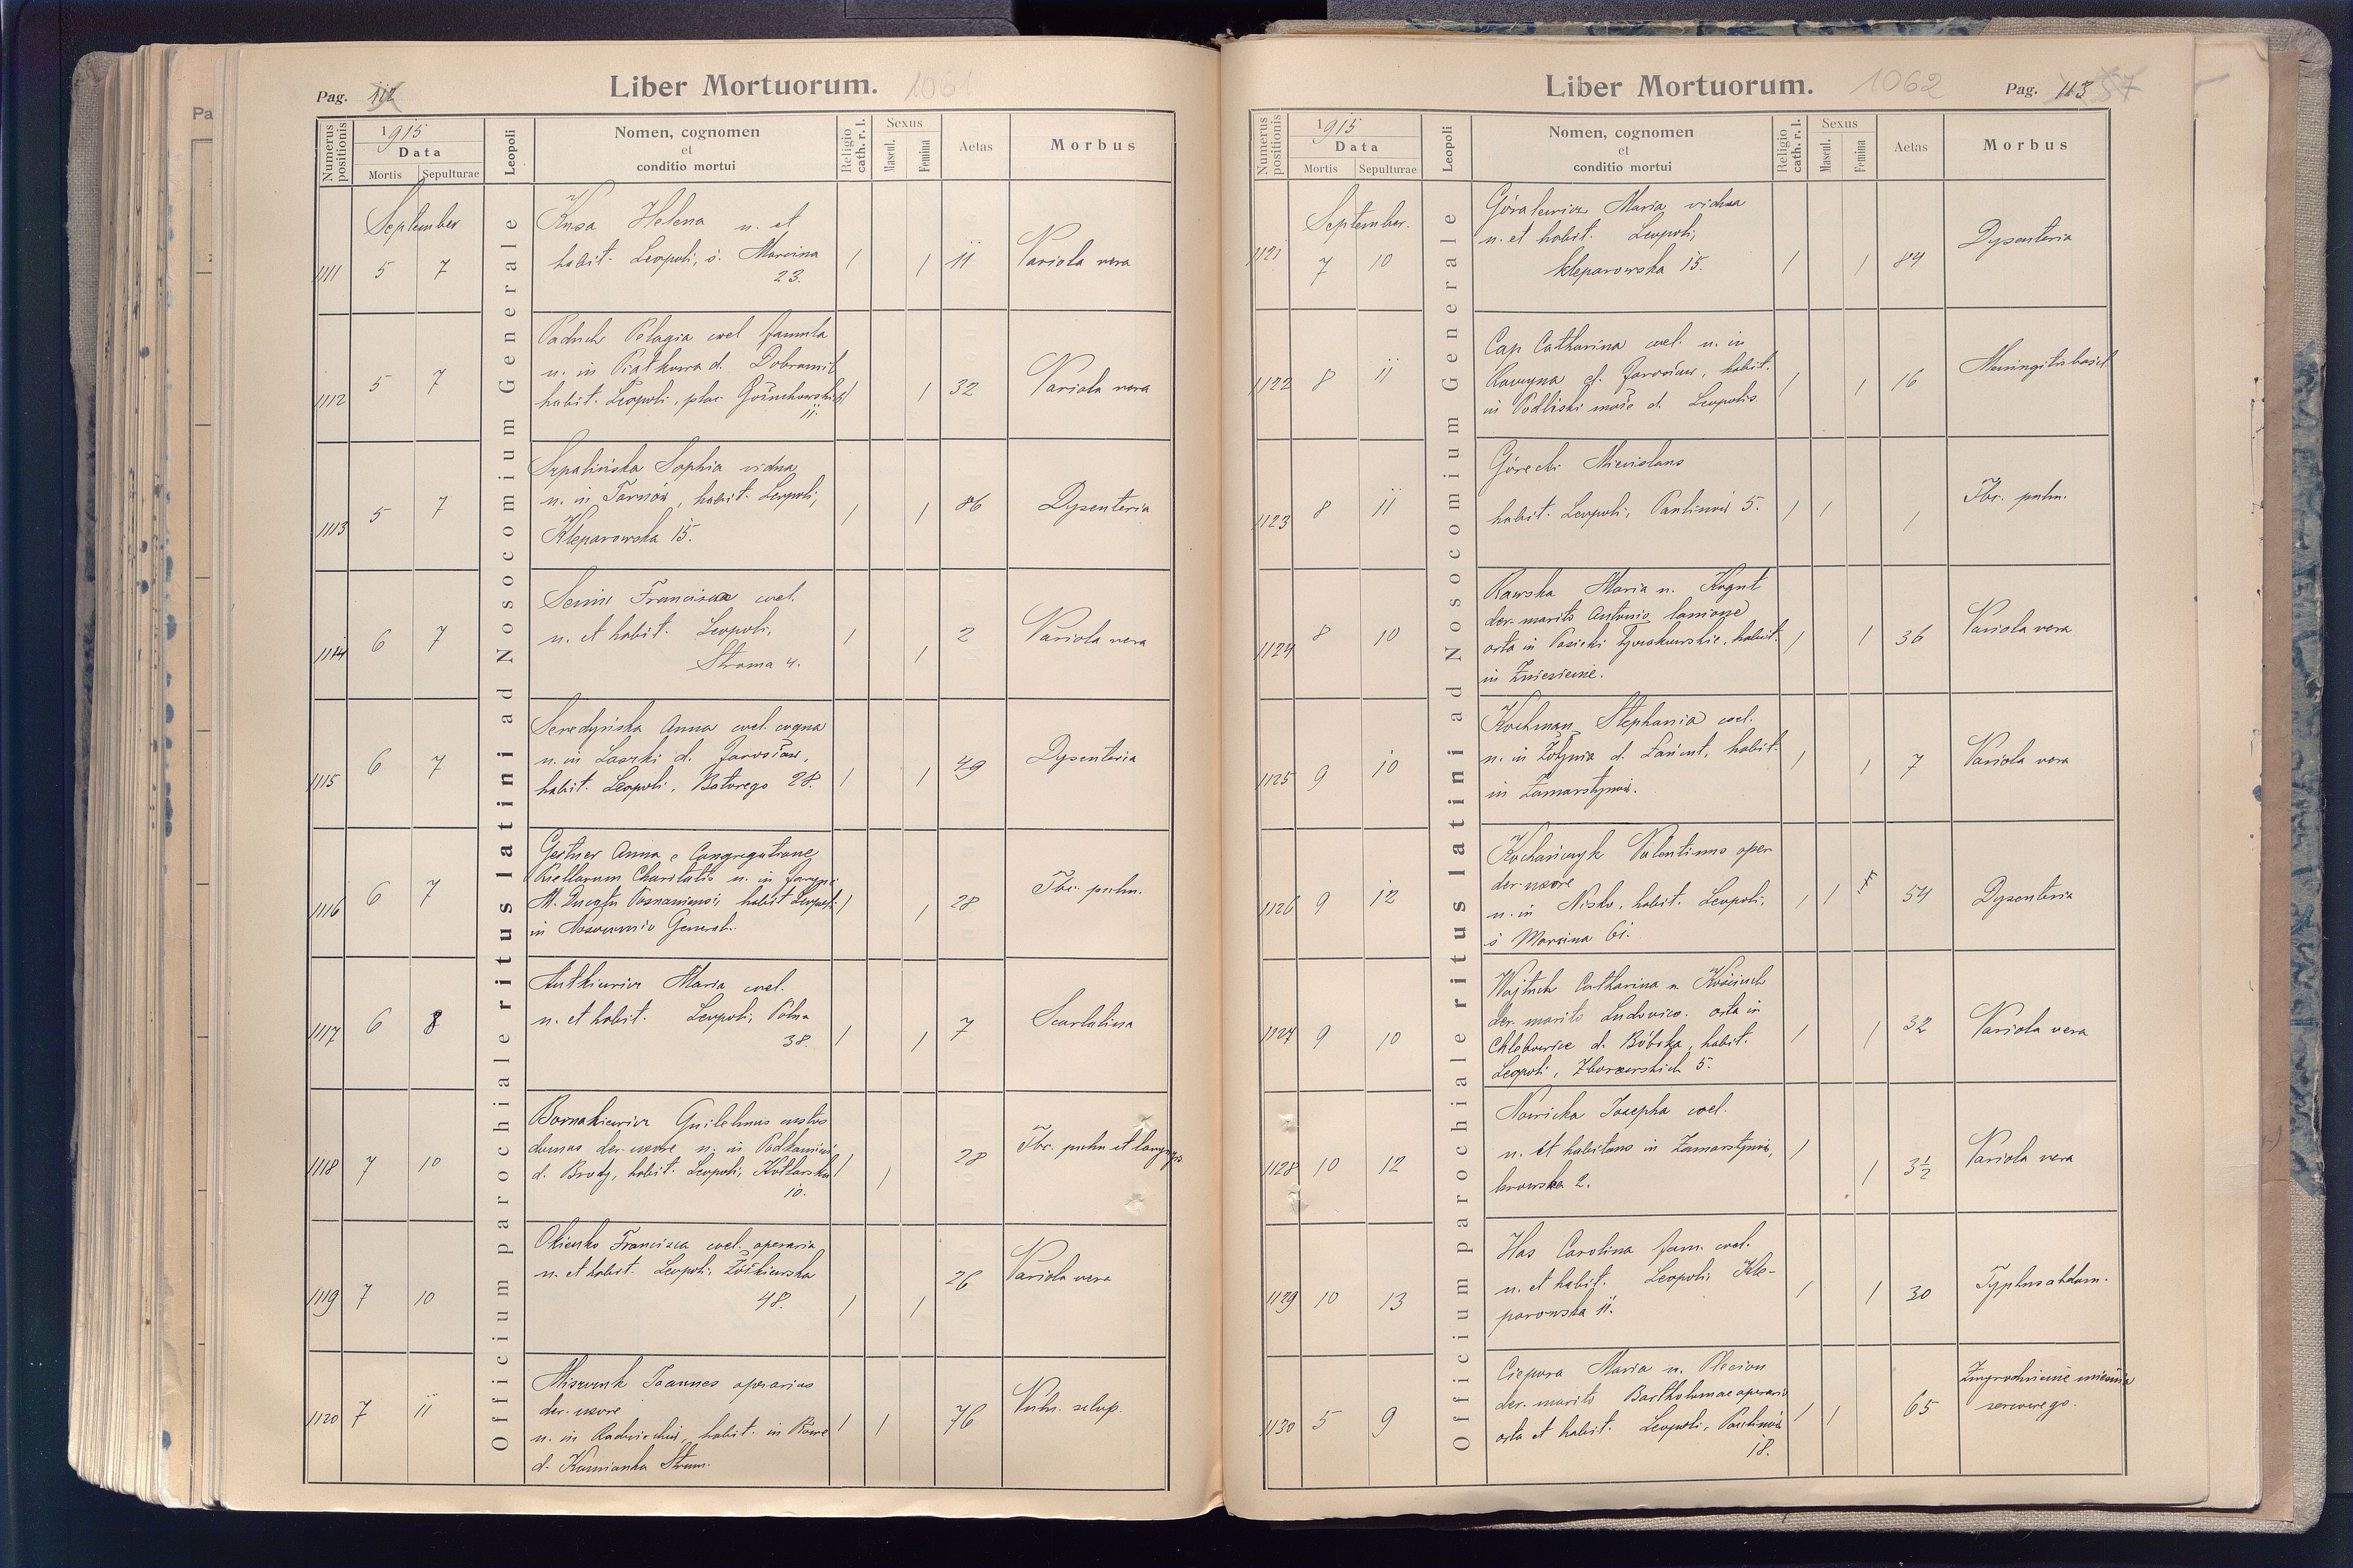 Pag. 112
Liber Mortuorum. 1061
Numerus positionis
1915
Data
Mortis Sepulturae
Leopoli
Nomen, cognomen
et
conditio mortui
Religio cath. r. l.
Sexus
Mascul. Femina
Aetas
Morbus
Officium parochiale ritus latini ad Nosocomium Generale
September
Kusa Helena n. et
habit. Leopoli, ś. Marcina
23.
1111 5 7 1 1 11 Variola vera
Paduch Pelagia coel famula
n. in Piatkowa d. Dobromil
habit. Leopoli, plac
11.
1112 5 7 1 1 32 Variola vera
Szpalińska Sophia vidua
n. in Tarnów, habit. Leopoli,
Kleparowska 15.
1113 5 7 1 1 86 Dysenteria
Francisca coel.
n. et habit. Leopoli,
Stroma 4.
1114 6 7 1 1 2 Variola vera
Seredyńska Anna coel. coqua
n. in Laszki d. Jarosław,
habit. Leopoli, Batorego 28.
1115 6 7 1 1 49 Dysenteria
Gertner Anna e Congregatione
Puellarum Charitatis n. in
M. Ducatu Posnaniensi, habit Leopoli
in Nosocomio General.
1116 6 7 1 1 28 Tbc. pulm.
Antkiewicz Maria coel.
n. et habit. Leopoli, Polna
38.
1117 6 8 1 1 7 Scarlatina
Bornakiewicz Guilelmus custos
domus der. uxore n. in Podkamień
d. Brody, habit. Leopoli, Kotlarska
10.
1118 7 10 1 1 28 Tbc. pulm et laryngis
Okienko Francisca coel. operaria
n. et habit. Leopoli, Żółkiewska
48.
1119 7 10 1 1 26 Variola vera
Joannes operarius
der. uxore
n. in Radziechów, habit. in
d. Kamionka Strum.
1120 7 11 1 1 76 Vuln. sclop.
Liber Mortuorum. 1062
Pag. 113 57
Numerus positionis
1915
Data
Mortis Sepulturae
Leopoli
Nomen, cognomen
et
conditio mortui
Religio cath. r. l.
Sexus
Mascul. Femina
Aetas
Morbus
Officium parochiale ritus latini ad Nosocomium Generale
September.
Góralewicz Maria vidua
n. et habit. Leopoli,
Kleparowska 15.
1121 7 10 1 1 84 Dysenteria
Cap Catharina coel. n. in
d. Jarosław, habit.
in Podliski małe d. Leopolis
1122 8 11 1 1 16 Meningitis basil.
Górecki Mieczislaus
habit. Leopoli, Paulinów 5.
1123 8 11 1 1 1 Tbc. pulm.
Rawska Maria n. Kogut
der. marito Antonio lanione
orta in Pasieki habit.
in Zniesienie.
1124 8 10 1 1 36 Variola vera
Kochman Stephania coel.
n. in Żołynia d. Łańcut, habit.
in Zamarstynów.
1125 9 10 1 1 7 Variola vera
Kochańczyk Valentinus oper
der. uxore
n. in Nisko, habit. Leopoli,
ś Marcina 61.
1126 9 12 1 1 54 Dysenteria
Wojtuch Catharina n.
der. marito Ludovico. orta in
Chlebowice d. Bóbrka, habit.
Leopoli, Zborowskich 5.
1127 9 10 1 1 32 Variola vera
Nowicka Josepha coel.
n. et habitans in Zamarstynów,
2.
1128 10 12 1 1 3½ Variola vera
Has Carolina fam. coel.
n. et habit. Leopoli Kle-
parowska 11.
1129 10 13 1 1 30 Typhus abdom.
Ciepora Maria n.
der. marito Bartholomae operario
orta et habit. Leopoli, Paulinów
18.
1130 5 9 1 1 65 Zwyrodnienie mięśnia
sercowego.